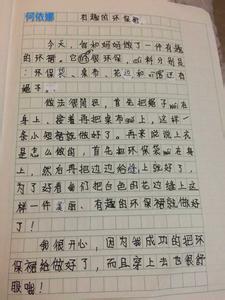 何依娜
有趣的环保裙
今天,我和妈妈做了一件有趣
的环裙。它很环保,材料分别是
:环保袋、桌布、花边和
绳子。
做法很简单,首先把绳子
身上,接着再把桌布上,这样一
条小短裙就做好了。再来说说上衣
是怎么做的,首先把环保袋在
身上,然后再把边边给缝上就好了,
为了好看我们把白色的花边缝上这
样一件美丽、有趣的环保裙就做好
了!
我很开心,因为我成功的把环
保裙给做好了,而且穿上去也很舒
服哦!